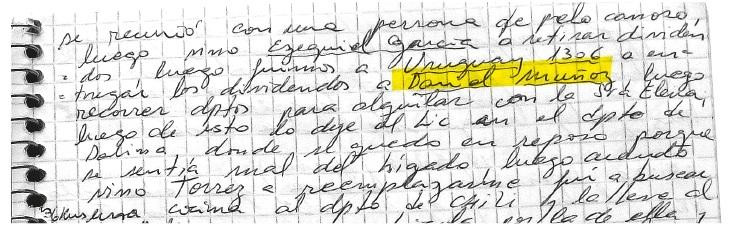 se reunió con una persona de pelo canoso,
luego vino Ezequiel García a retirar dividen
= dos luego fuimos a Uruguay 1306 a en=
= tregar los dividendos a Daniel Muñoz luego
recorrer dptos para alquilar con la Srta Elena,
luego de esto lo deje al Lic en el dpto de
Dalina donde se quedo en reposo porque
se sentía mal del hígado luego cuando
vino Torrez a reemplazarme fui a buscar
cocina al dpto de Chili y la lleve al
la de ella,